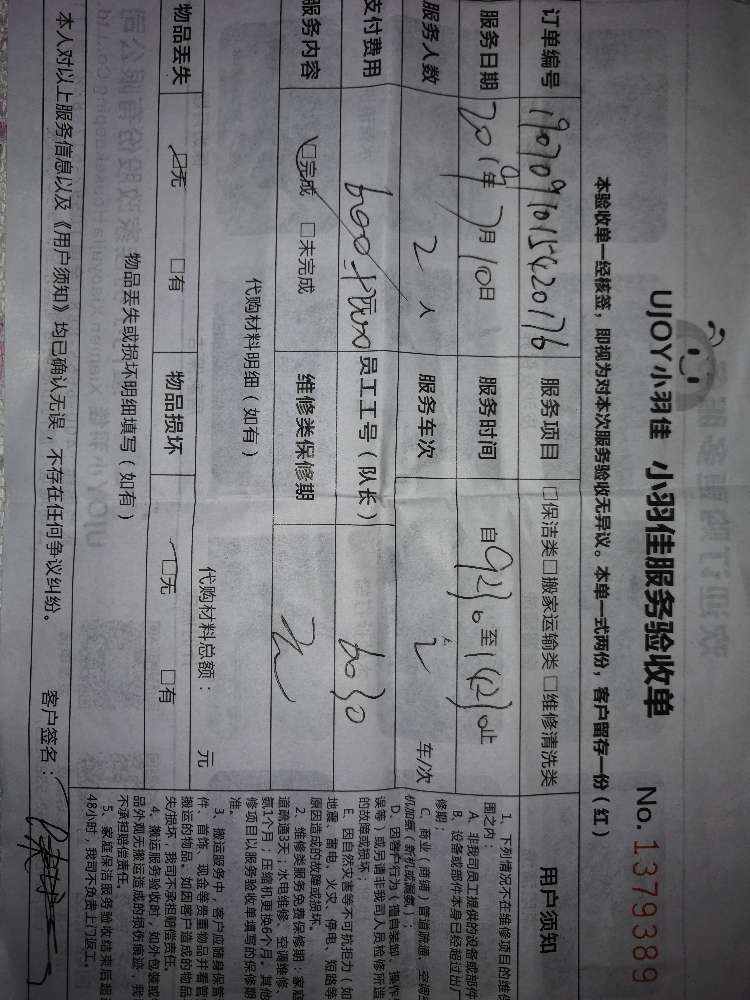 UJOY小羽佳 小羽佳服务验收单 No. 1379389
本验收单一经核签，即视为对本次服务验收无异议。本单一式两份，客户留存一份（红）
订单编号 服务项目 □保洁类□搬家运输类□维修清洗类
服务日期 2019年7月10日 服务时间 自 至 止
服务人数 2人 服务车次 2 车/次
支付费用 员工工号（队长） 6030
服务内容 □完成 □未完成 维修类保修期
代购材料明细（如有） 代购材料总额： 元
物品丢失 □无 □有 物品损坏 □无 □有
物品丢失或损坏明细填写（如有）
本人对以上服务信息以及《用户须知》均已确认无误，不存在任何争议纠纷。 客户签名：
用户须知
1、下列情况不在维修项目的维
围之内
A、非我司员工提供的设备或部件
B、设备或部件本身已经超过出厂
修期；
C、商业（商铺）管道疏通、空调
机加氨（新机或漏氨）；
D、因客户行为（擅自装卸、操作
误等）或另请非我司人员检修所造
的故障或损坏；
E、因自然灾害等不可抗拒力（如
地震、雷电、火灾、停电、短路等
原因造成的故障或损坏。
2、维修类服务免费保修期：家庭
道疏通3天；水电维修、空调维修、
氨1个月；压缩机更换6个月。其他
修项目以服务验收单填写的保修期
准。
3、搬运服务中，客户应随身保管
件、首饰、现金等贵重物品并看管
搬运的物品。如因客户造成的物品
失/损坏，我司不承担赔偿责任。
4、搬运服务验收时，如外包装或
品外观无搬运造成的损伤痕迹，我
不承担赔偿责任。
5、家庭保洁服务验收结束后超
48小时，我司不负责上门返工。